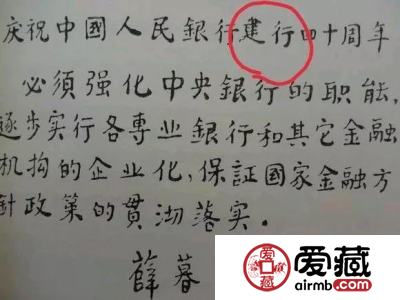 庆祝中國人民銀行建行四十周年
必须强化中央銀行的职能,
逐步实行各專业銀行和其它金融
机构的企业化,保証國家金融方
針政策的貫沏落实。
薛暮
爱藏
airmb.com